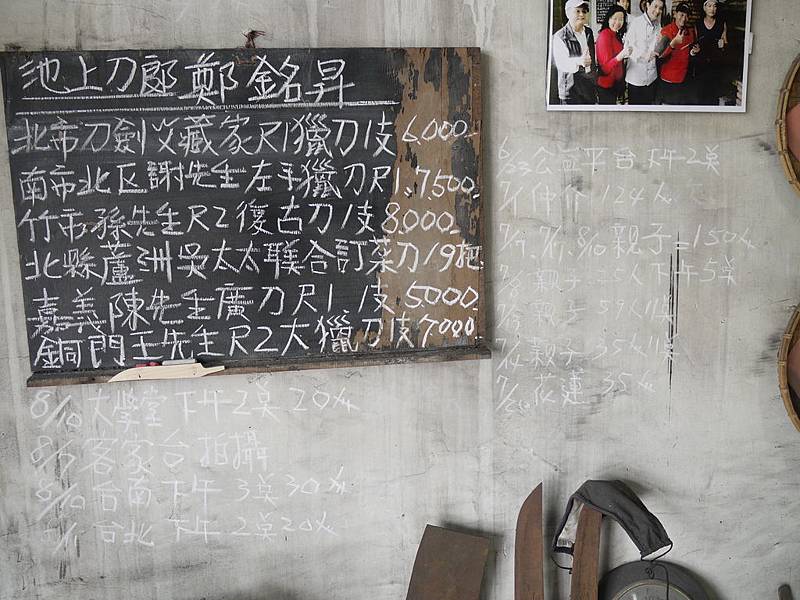 池上刀郎鄭銘昇
北市刀劍收藏家尺1獵刀1支6,000.
南市北区謝先生左手獵刀尺1.7,500.
竹市孫先生尺2復古刀1支8,000.
北縣蘆洲吳太太聯合訂菜刀19把
嘉義陳先生廣刀尺1 1支5000.
銅門王先生尺2大獵刀1支7000
8/10大學堂下午2奌20人
客家台拍攝
8/10台南下午3奌30人
台北下午2奌20人
6/23公益平台下午2奌
7/1仲介124人
8/10親子=150人
親子 下午5奌
親子35人11奌
花蓮35人